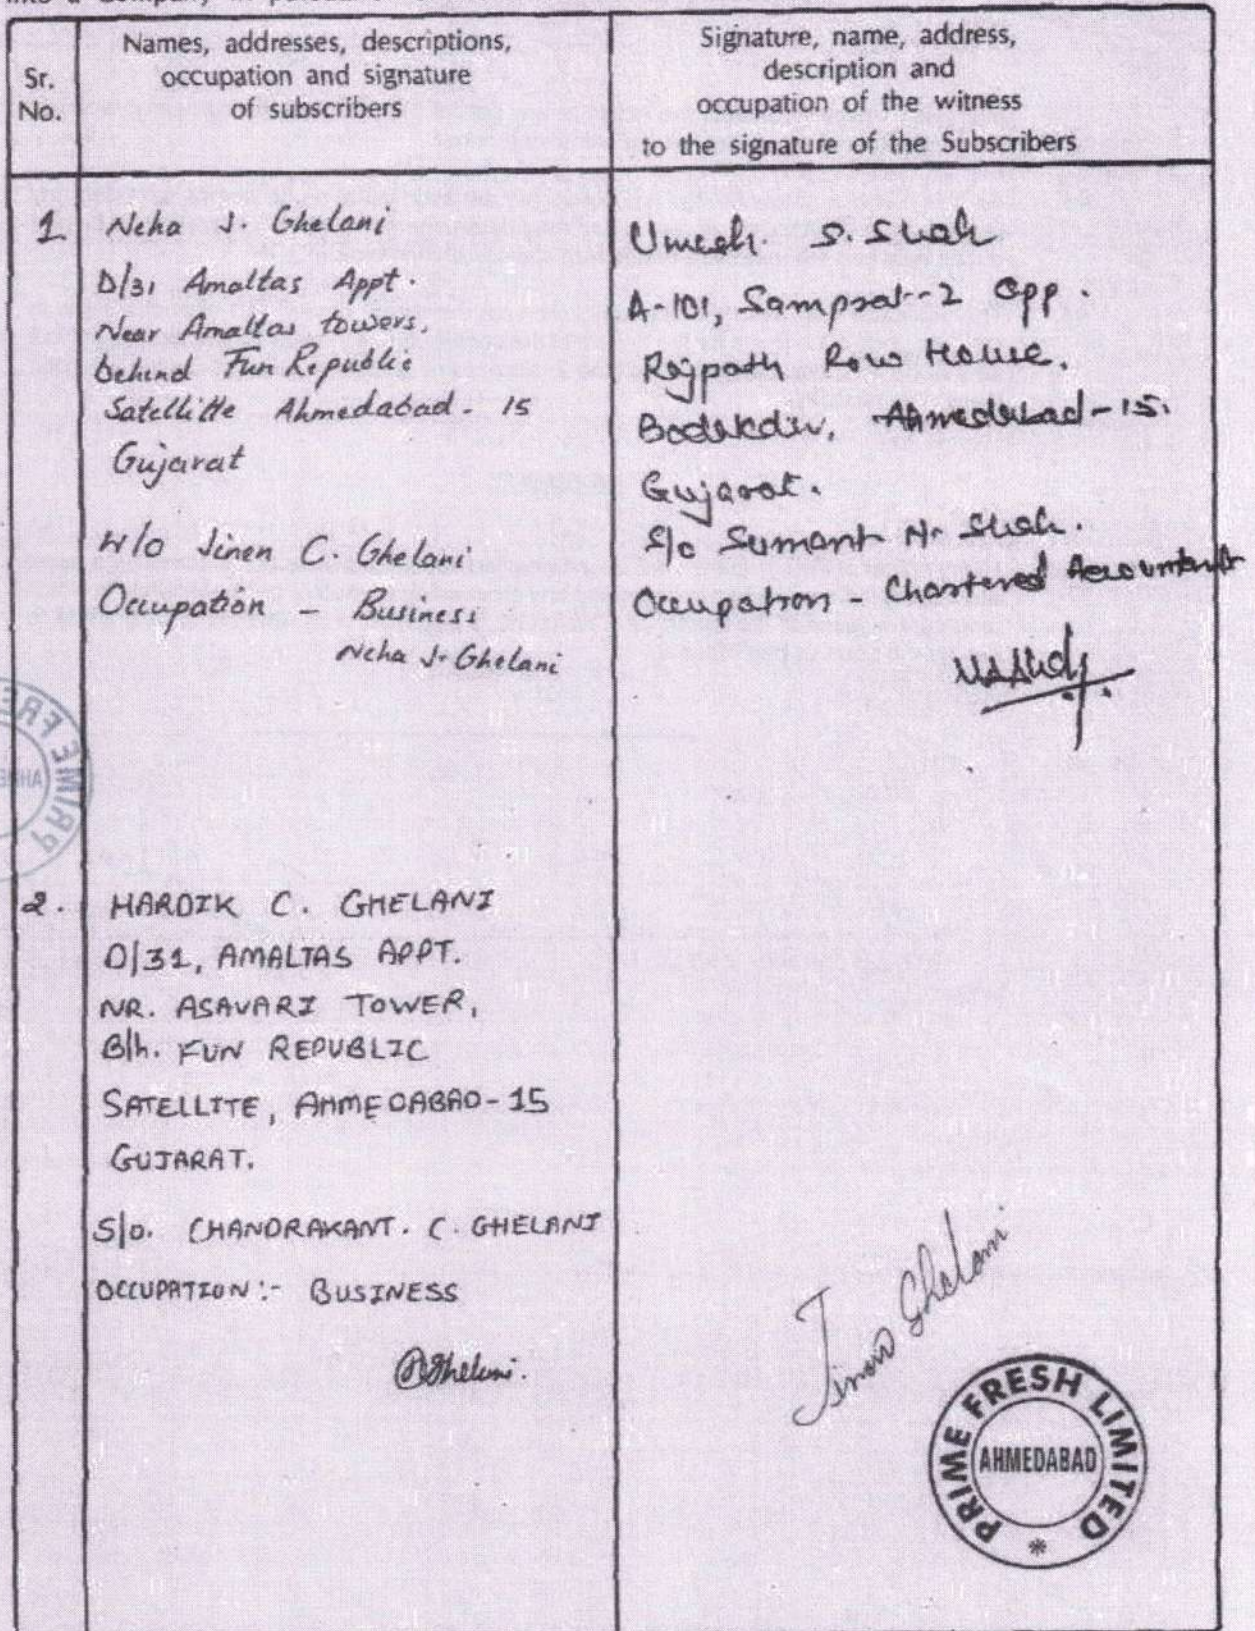 Sr.
No.
Names, addresses, descriptions,
occupation and signature
of subscribers
Signature, name, address,
description and
occupation of the witness
to the signature of the Subscribers
1
Neha J. Ghelani
D/31 Amaltas Appt.
Near Amaltas towers,
behind Fun Republic
Satellitte Ahmedabad - 15
Gujarat
W/o Jinen C. Ghelani
Occupation - Business
Neha J. Ghelani
Umesh. S. Shah
A-101, Sampsat-2 Opp.
Rajpath Row House.
Bodakdev, Ahmedabad-15.
Gujarat.
S/o Sumant N. Shah.
Occupation - Chartered Accountant
2.
HARDIK C. GHELANI
D/31, AMALTAS APPT.
NR. ASAVARI TOWER,
B/h. FUN REPUBLIC
SATELLITE, AHMEDABAD-15
GUJARAT.
S/o. CHANDRAKANT. C. GHELANI
OCCUPATION:- BUSINESS
Ghelani.
Jinen Ghelani
PRIME FRESH LIMITED
AHMEDABAD